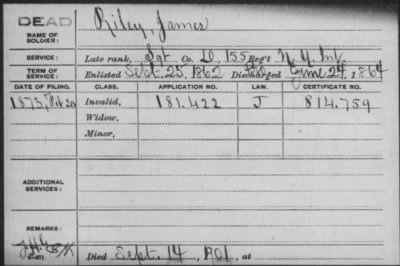 DEAD
Riley, James
NAME OF SOLDIER:
SERVICE: Late rank, Sgt Co. D, 155 Reg't N.Y. Inf.
TERM OF SERVICE: Enlisted Sept. 25, 1862 Discharged June 24, 1864
DATE OF FILING. CLASS. APPLICATION NO. LAW. CERTIFICATE NO.
1873, Oct 20 Invalid, 181.422 J 814.759
Widow,
Minor,
ADDITIONAL SERVICES:
REMARKS:
Died Sept. 14, 1901, at